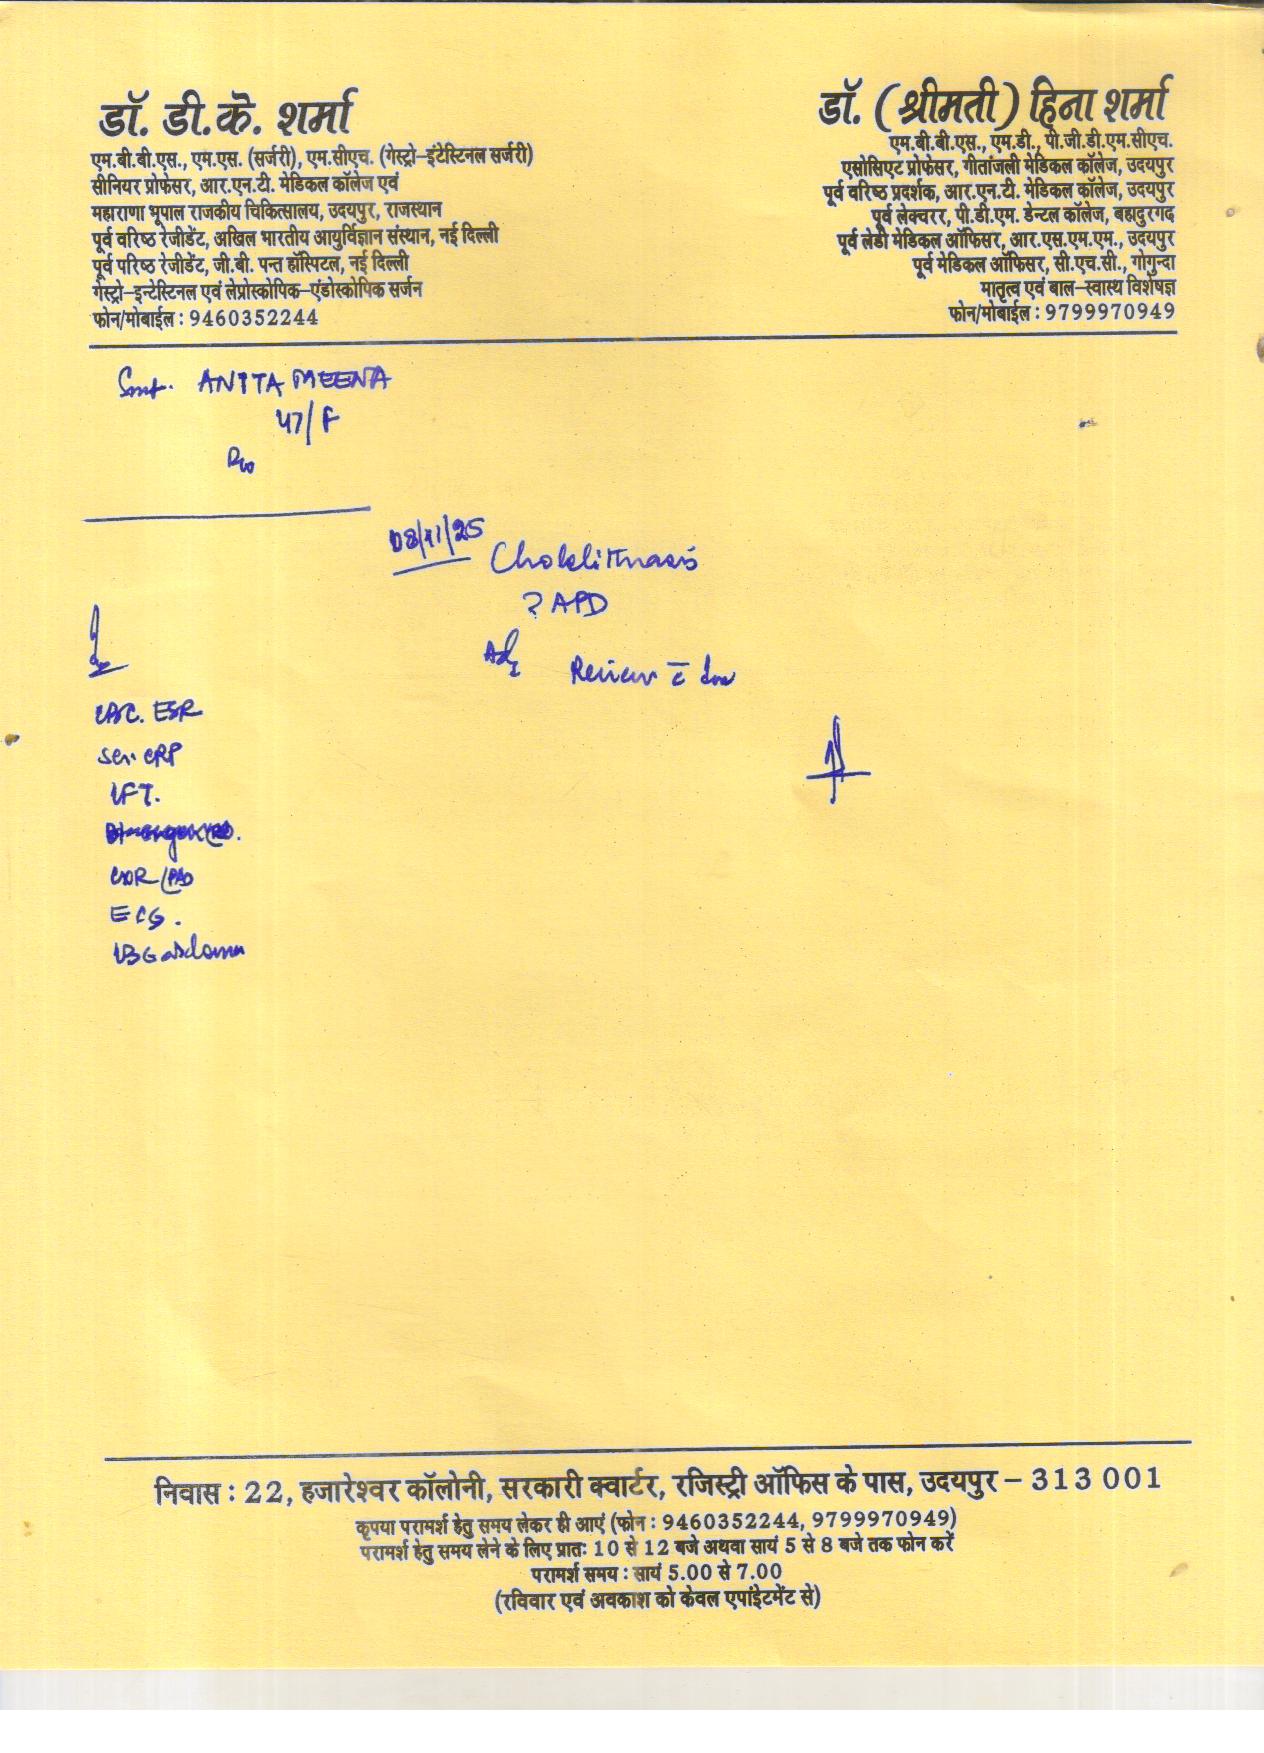 डॉ. डी.के. शर्मा
एम.बी.बी.एस., एम.एस. (सर्जरी), एम.सीएच. (गेस्ट्रो–इंटेस्टिनल सर्जरी)
सीनियर प्रोफेसर, आर.एन.टी. मेडिकल कॉलेज एवं
महाराणा भूपाल राजकीय चिकित्सालय, उदयपुर, राजस्थान
पूर्व वरिष्ठ रेजीडेंट, अखिल भारतीय आयुर्विज्ञान संस्थान, नई दिल्ली
पूर्व परिष्ठ रेजीडेंट, जी.बी. पन्त हॉस्पिटल, नई दिल्ली
गेस्ट्रो–इन्टेस्टिनल एवं लेप्रोस्कोपिक–एंडोस्कोपिक सर्जन
फोन/मोबाईल : 9460352244
डॉ. (श्रीमती) हिना शर्मा
एम.बी.बी.एस., एम.डी., पी.जी.डी.एम.सीएच.
एसोसिएट प्रोफेसर, गीतांजली मेडिकल कॉलेज, उदयपुर
पूर्व वरिष्ठ प्रदर्शक, आर.एन.टी. मेडिकल कॉलेज, उदयपुर
पूर्व लेक्चरर, पी.डी.एम. डेन्टल कॉलेज, बहादुरगढ
पूर्व लेडी मेडिकल ऑफिसर, आर.एस.एम.एम., उदयपुर
पूर्व मेडिकल ऑफिसर, सी.एच.सी., गोगुन्दा
मातृत्व एवं बाल–स्वास्थ विशेषज्ञ
फोन/मोबाईल : 9799970949
Smt. ANITA MEENA
47/F
08/11/25
? APD
Adv
Review c̄
CBC. ESR
Ser. CRP
LFT.
CXR/PA
ECG.
निवास : 22, हजारेश्वर कॉलोनी, सरकारी क्वार्टर, रजिस्ट्री ऑफिस के पास, उदयपुर – 313 001
कृपया परामर्श हेतु समय लेकर ही आएं (फोन : 9460352244, 9799970949)
परामर्श हेतु समय लेने के लिए प्रातः 10 से 12 बजे अथवा सायं 5 से 8 बजे तक फोन करें
परामर्श समय : सायं 5.00 से 7.00
(रविवार एवं अवकाश को केवल एपांइटमेंट से)